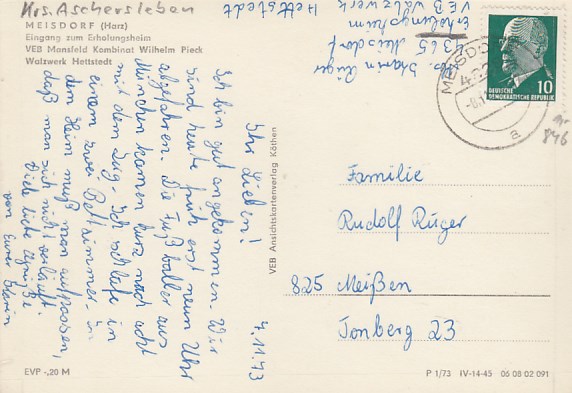 Krs. Aschersleben
MEISDORF (Harz)
Eingang zum Erholungsheim
VEB Mansfeld Kombinat Wilhelm Pieck
Walzwerk Hettstedt
Abs. Rüger
4365 Meisdorf
Erholungsheim
VEB Walzwerk
Hettstedt
MEISDORF
a
10
DEUTSCHE
DEMOKRATISCHE REPUBLIK
846
7.11.73
Ihr Lieben!
Ich bin gut angekommen. Wir
sind heute früh erst neun Uhr
abgefahren. Die Fußballer aus
München kamen kurz nach acht
mit dem Zug. Ich schlafe in
einem zwei Bettzimmer. In
dem Heim muß man aufpassen,
daß man sich nicht verläuft.
Viele liebe Grüße
von Eurer
VEB Ansichtskartenverlag Köthen
Familie
Rudolf Rüger
825 Meißen
Jonberg 23
EVP -,20 M
P 1/73 IV-14-45 06 08 02 091